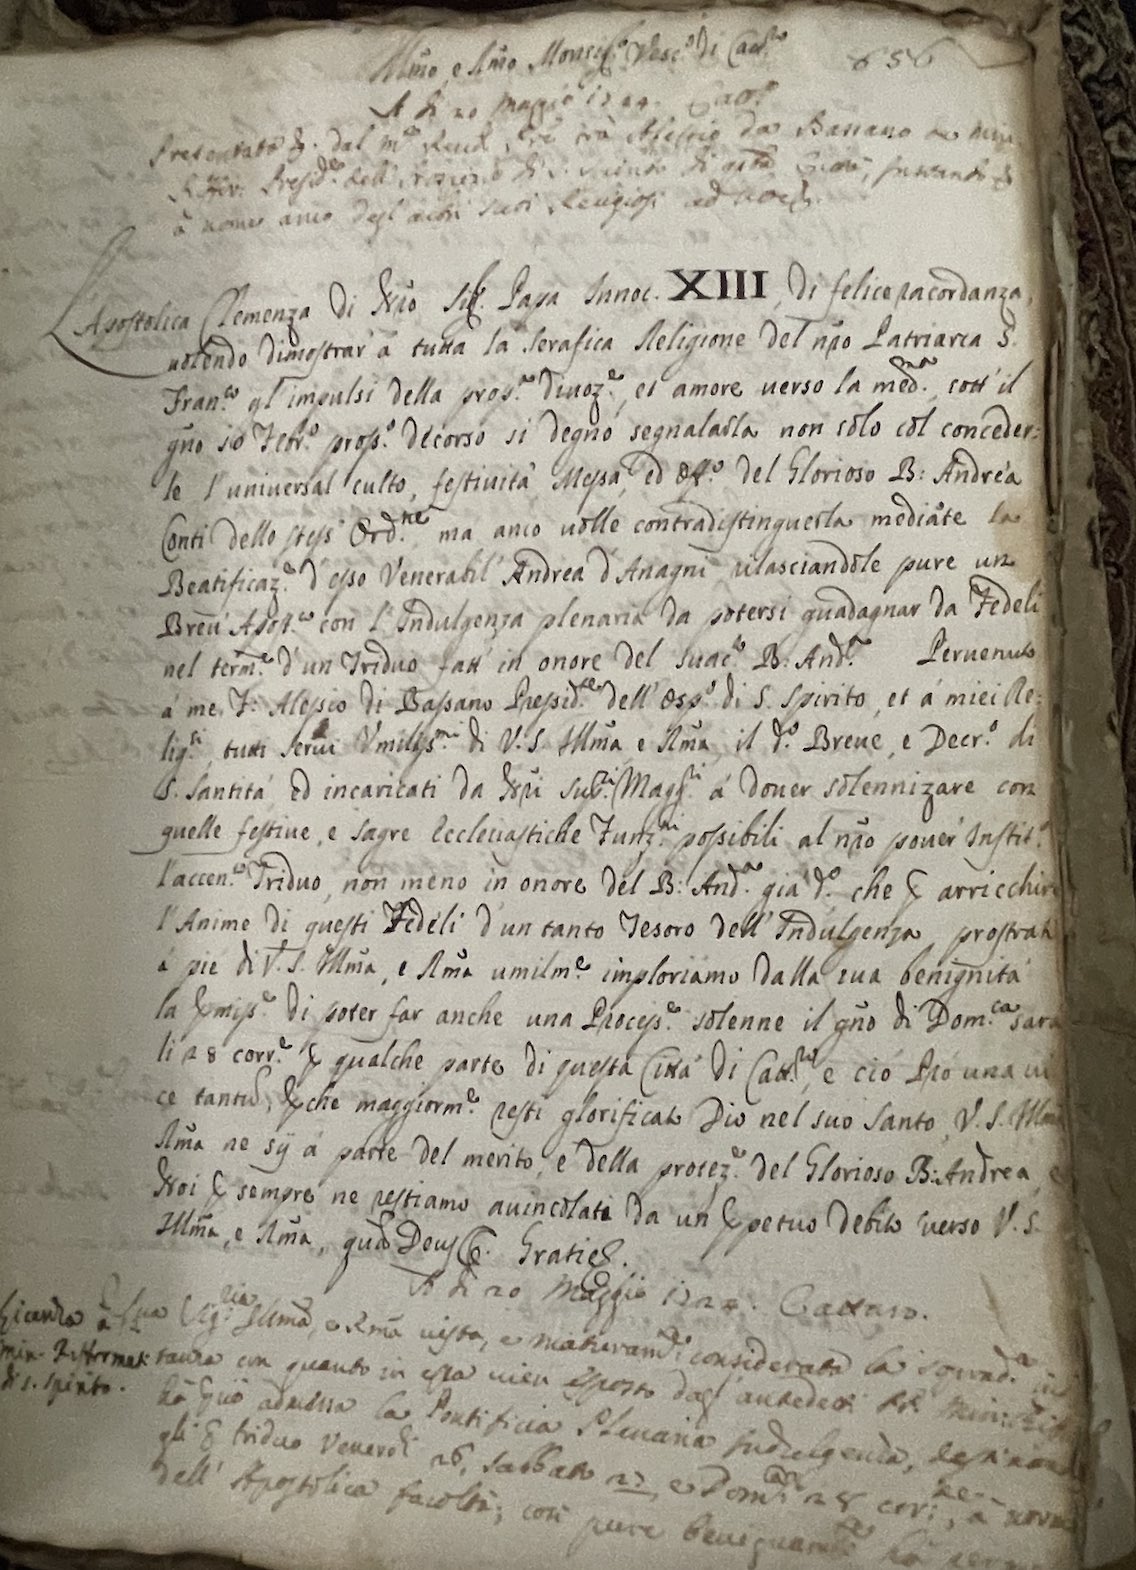 Illmo, e Rmo Monsigr Vescº di Cattro
656
A di 20 Maggio 1724. Cattº
Presentata &. dal mº Revd. Pre frà Alessio da Bassano
Presidte dell' Ospizio di S. Spirito di qta Città, instando &
à nome anco degl' altri suoi Religiosi ad hoc &.
L'Apostolica Clemenza di Nro Sigr. Papa Innoc. XIII, di felice racordanza,
volendo dimostrar à tutta la Serafica Religione del nro Patriarca S.
Franco gl'impulsi della propa divoze, et amore verso la meda, cott' il
gno 10 Febro prossº decorso si degnò segnalarla non solo col conceder=
le l'universal culto, festività Messa, ed offº del Glorioso B: Andrea
Conti dello stess' Ordne ma anco volle contradistinguerla mediāte la
Beatificaze d'esso Venerabil' Andrea d'Anagni rilasciandole pure un
Breu' Apostco con l'Indulgenza plenaria da potersi guadagnar da Fedeli
nel terme d'un Triduo fatt' in onore del suacto B. Anda Pervenuto
à me F: Alessio di Bassano Pressidte dell' Ospº di S. Spirito, et à miei Re=
ligsi, tutti servi Vmilissmi di V. S. Illma e Rma, il dº Breve, e Decrº di
S. Santità, ed incaricati da Nri Subi Maggri à dover solennizare con
quelle festive, e sagre Ecclesiastiche Funzni possibili al nro pover' Institº
l'accenº Triduo, non meno in onore del B: Anda già dº che ꝑ arricchire
l'Anime di questi Fedeli d'un tanto Tesoro dell' Indulgenza, prostrati
à piè di V. S. Illma, e Rma umilme imploriamo dalla sua benignità
la ꝑmisse di poter far anche una Procese solenne il gno di Domca sarà
li 28 corre ꝑ qualche parte di questa Città di Cattro, e ciò Pro una vi
ce tantu, ꝑche maggiorme resti glorificato Dio nel suo Santo, V. S. Illma
Rma ne sij à parte del merito, e della proteze del Glorioso B: Andrea, e
Noi ꝑ sempre ne restiamo avincolati da un ꝑpetuo debito verso V. S.
Illma, e Rma, qua Deus &. Gratie &.
A di 20 Maggio 1724. Cattaro.
Sua Sigria Illma, e Rma vista, e maturamte considerata la
con quanto in essa vien esposto dagl' antedetti RR. Minri
hà admessa la Pontificia Plenaria Indulgenza,
gli ꝑ triduo Venerdi 26, Sabbato 27, e Domca 28 corre, à norma
dell' Apostolica facoltà; così pure benignamte hà
Licenza à
Min. Rifformati
di S. Spirito.